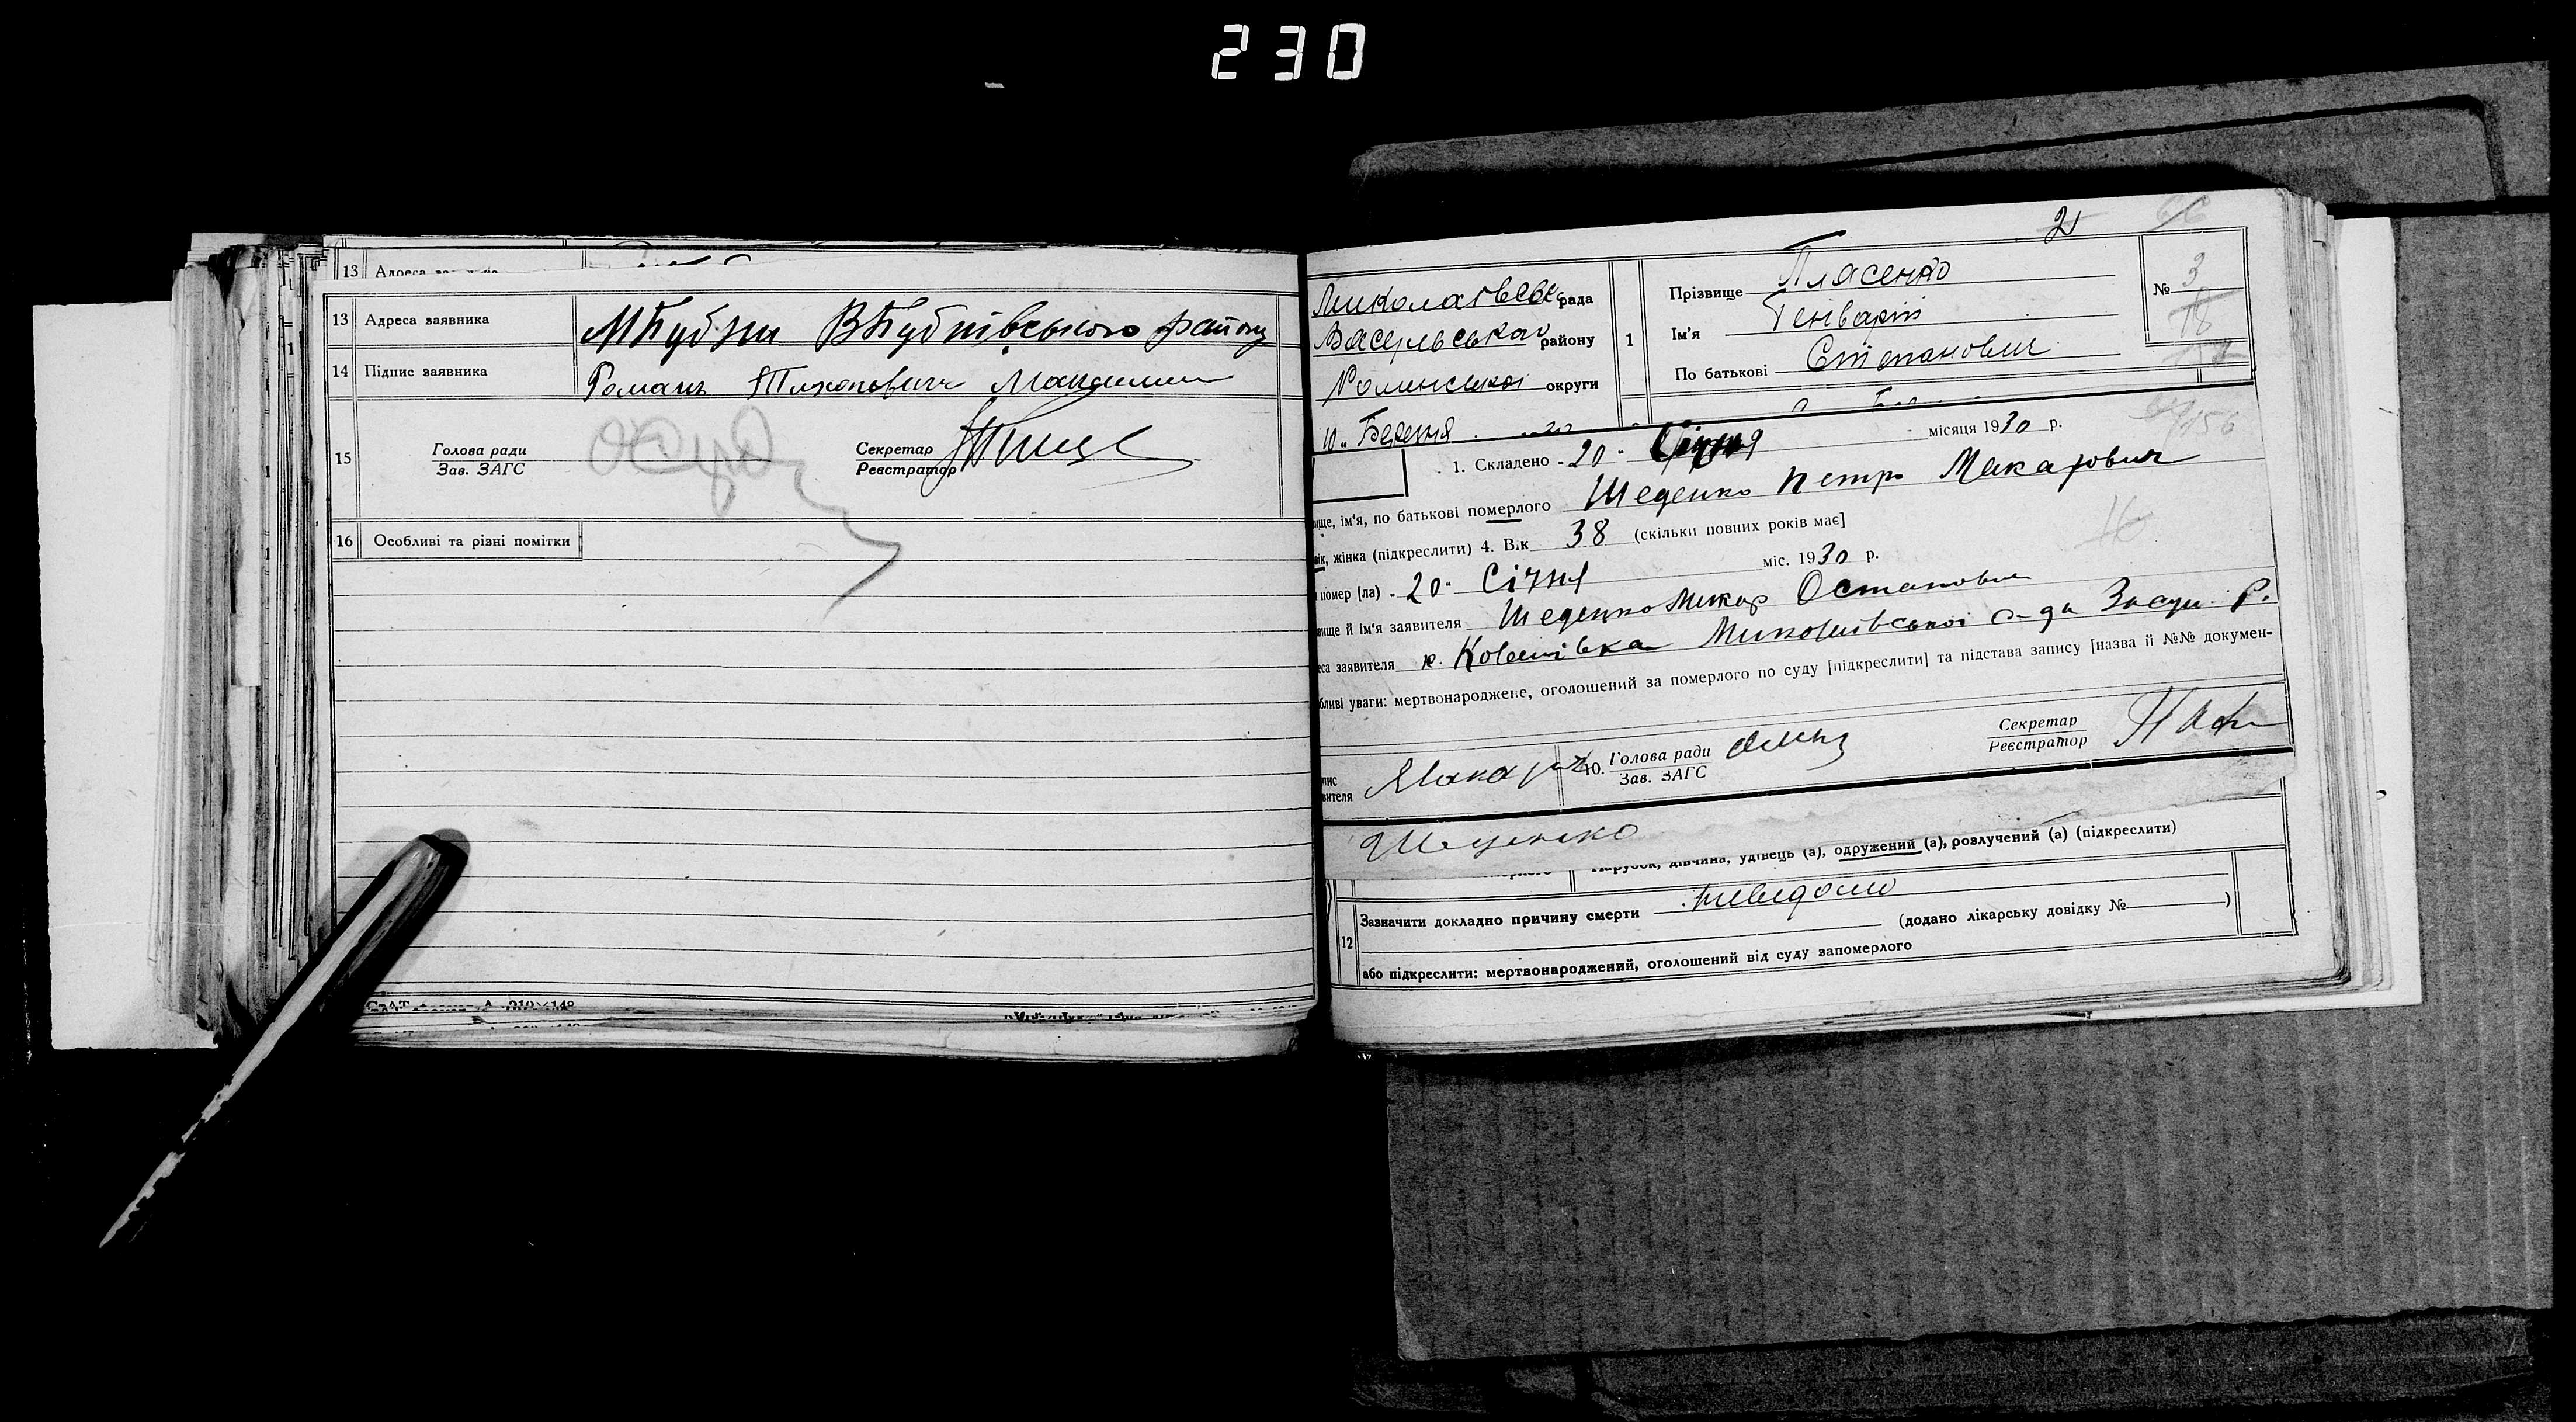 230
13 Адреса заявника
13 Адреса заявника МБубни ВБубнівського району
14 Підпис заявника Романъ Тихонович
15 Голова ради
Зав. ЗАГС
Секретар
Реєстратор
16 Особливі та різні помітки
2
Миколаївськ рада
району
Роменської округи
10 „ Березня
1
Прізвище Власенко
Ім'я Генварій
По батькові Степанович
№ 3
18
1. Складено „ 20 " Січня місяця 1930 р.
ище, ім'я, по батькові померлого Шеденко Петро Макарович
ік, жінка (підкреслити) 4. Вік 38 (скільки повних років має]
помер [ла] „ 20 " Січня міс. 1930 р.
вище й ім'я заявителя Шеденко Макар Остапович
еса заявителя х. Миколаївської с-да Засул. Р.
бливі уваги: мертвонароджене, оголошений за померлого по суду [підкреслити] та підстава запису [назва й №№ докумен-
пис
вителя Макар
10. Голова ради
Зав. ЗАГС
Секретар
Реєстратор
Шеденко
Парубок, дівчина, удівець (а), одружений (а), розлучений (а) (підкреслити)
12 Зазначити докладно причину смерти невидомо
(додано лікарську довідку № )
або підкреслити: мертвонароджений, оголошений від суду запомерлого